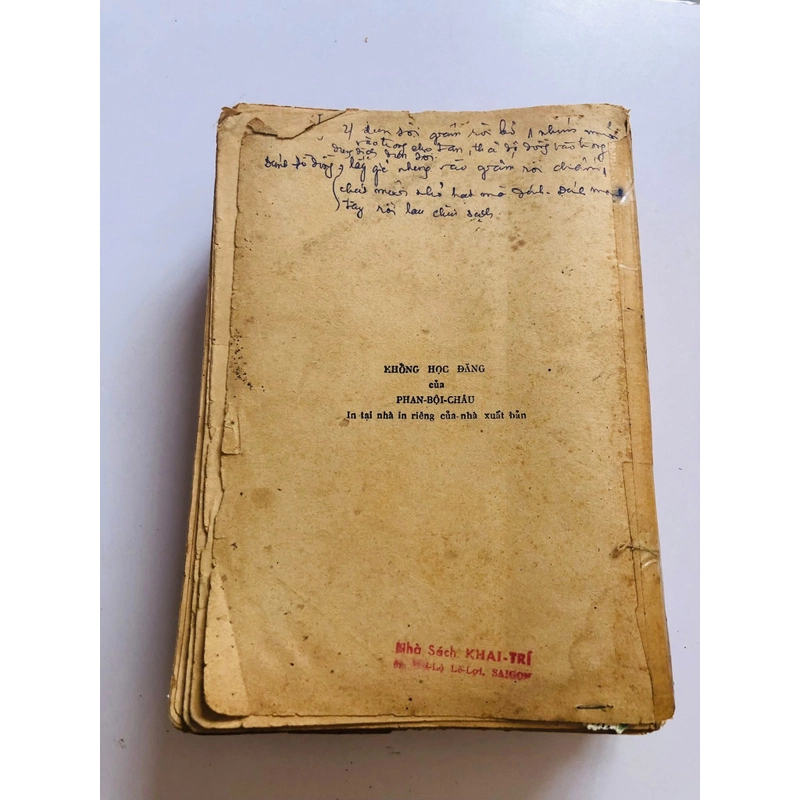 2) đun sôi giấm rồi bỏ 1 nhúm muối
vào trong cho tan, thả độ đồng vào trong
dung dịch đun sôi
Đánh đồ đồng, lấy giẻ nhúng vào giấm rồi chấm
chút muối nhỏ hạt mà đánh. Đánh mạnh
tay rồi lau chùi sạch.
KHỔNG HỌC ĐĂNG
của
PHAN-BỘI-CHÂU
In tại nhà in riêng của nhà xuất bản
Nhà Sách KHAI-TRÍ
Lê-Lợi, SAIGON